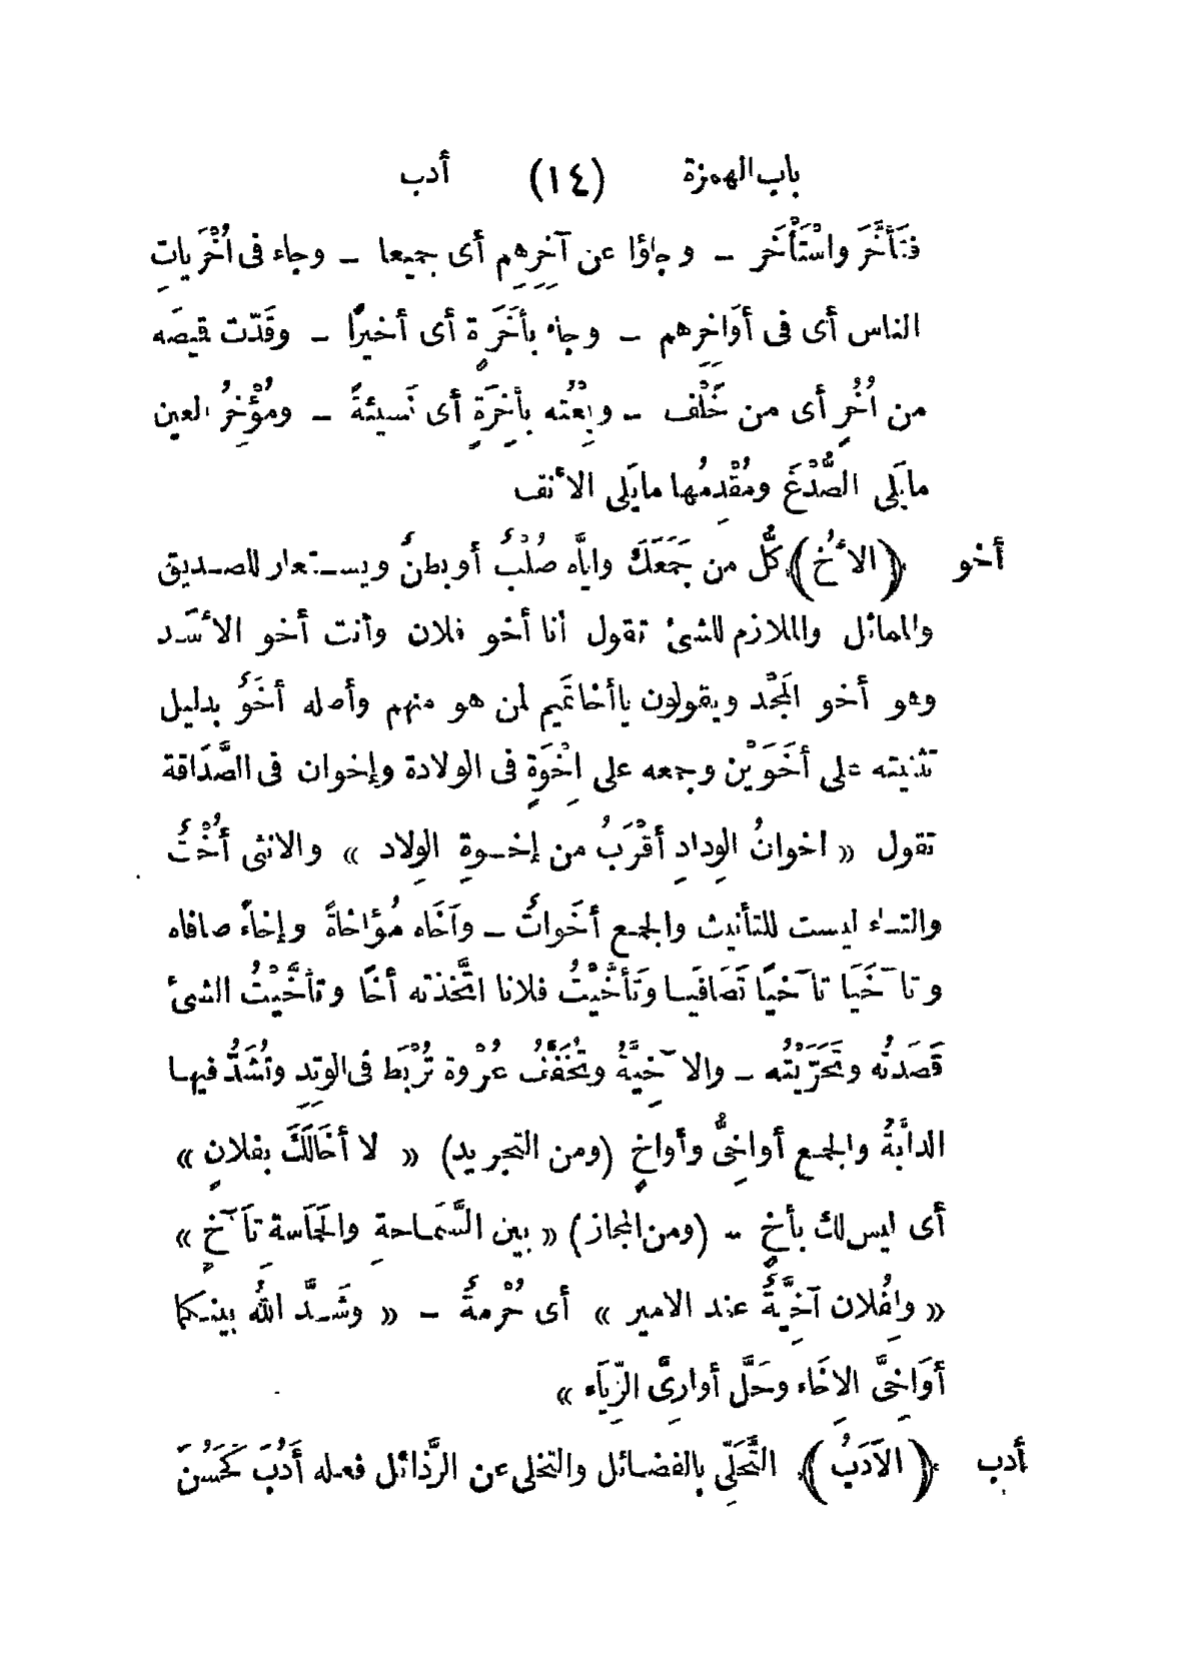 باب الهمزة (١٤) أدب
فتَأَخَّرَ واسْتَأْخَر – وجاؤا عن آخِرِهِم أى جميعا – وجاء فى أُخْرَياتِ
الناس أى فى أَوَاخِرِهم – وجاء بأَخَرَةٍ أى أخيرًا – وقَدَّت قميصَه
من أُخُرٍ أى من خَلْف – وبِعْتُه بأَخِرَةٍ أى نَسيئةً – ومُؤْخِرُ العين
مايَلى الصُّدْغَ ومُقْدِمُها مايَلى الأنف
أخو (الأخُ) كُلُّ من جَمَعَكَ واياَّه صُلْبٌ أو بطنٌ ويستعار للصديق
والمماثل والملازم للشئ تقول أنا أخو فلان وأنت أخو الأسَد
وهو أخو المَجْد ويقولون ياأخاتَميم لمن هو منهم وأصله أخَوٌ بدليل
تثنيته على أخَوَيْن وجمعه على اِخْوَةٍ فى الولادة وإخوان فى الصَّدَاقة
تقول « اخوانُ الوِدادِ أقْرَبُ من إخوةِ الوِلاد » والانثى أُخْتٌ
والتاء ليست للتأنيث والجمع أخَواتٌ – وآخَاه مُؤَاخاةً وإخاءً صافاه
وتآخَيَا تآخيًا تَصَافَيا وتَأَخَّيْتُ فلانا اتَّخذته أخًا وتأخَّيْتُ الشئ
قَصَدتُه وتَحَرَّيْتُه – والآخِيَّةُ وتُخَفَّفُ عُرْوة تُرْبَط فى الوَتِدِ وتُشَدُّ فيها
الدابَّةُ والجمع أواخِىُّ وأواخٍ (ومن التجريد) « لا أخَالَكَ بفلانٍ »
أى ليس لك بأخٍ – (ومن المجاز) « بين السَّمَاحةِ والحَمَاسةِ تآخٍ »
« ولِفُلان آخِيَّةٌ عند الامير » أى حُرْمةٌ – « وشَدَّ اللهُ بينكما
أوَاخِىَّ الاِخَاء وحَلَّ أوارِىَّ الرِّيَاء »
أدب (الأَدَبُ) التَّحَلِّى بالفضائل والتخلى عن الرَّذائل فعله أَدُبَ كَحَسُنَ